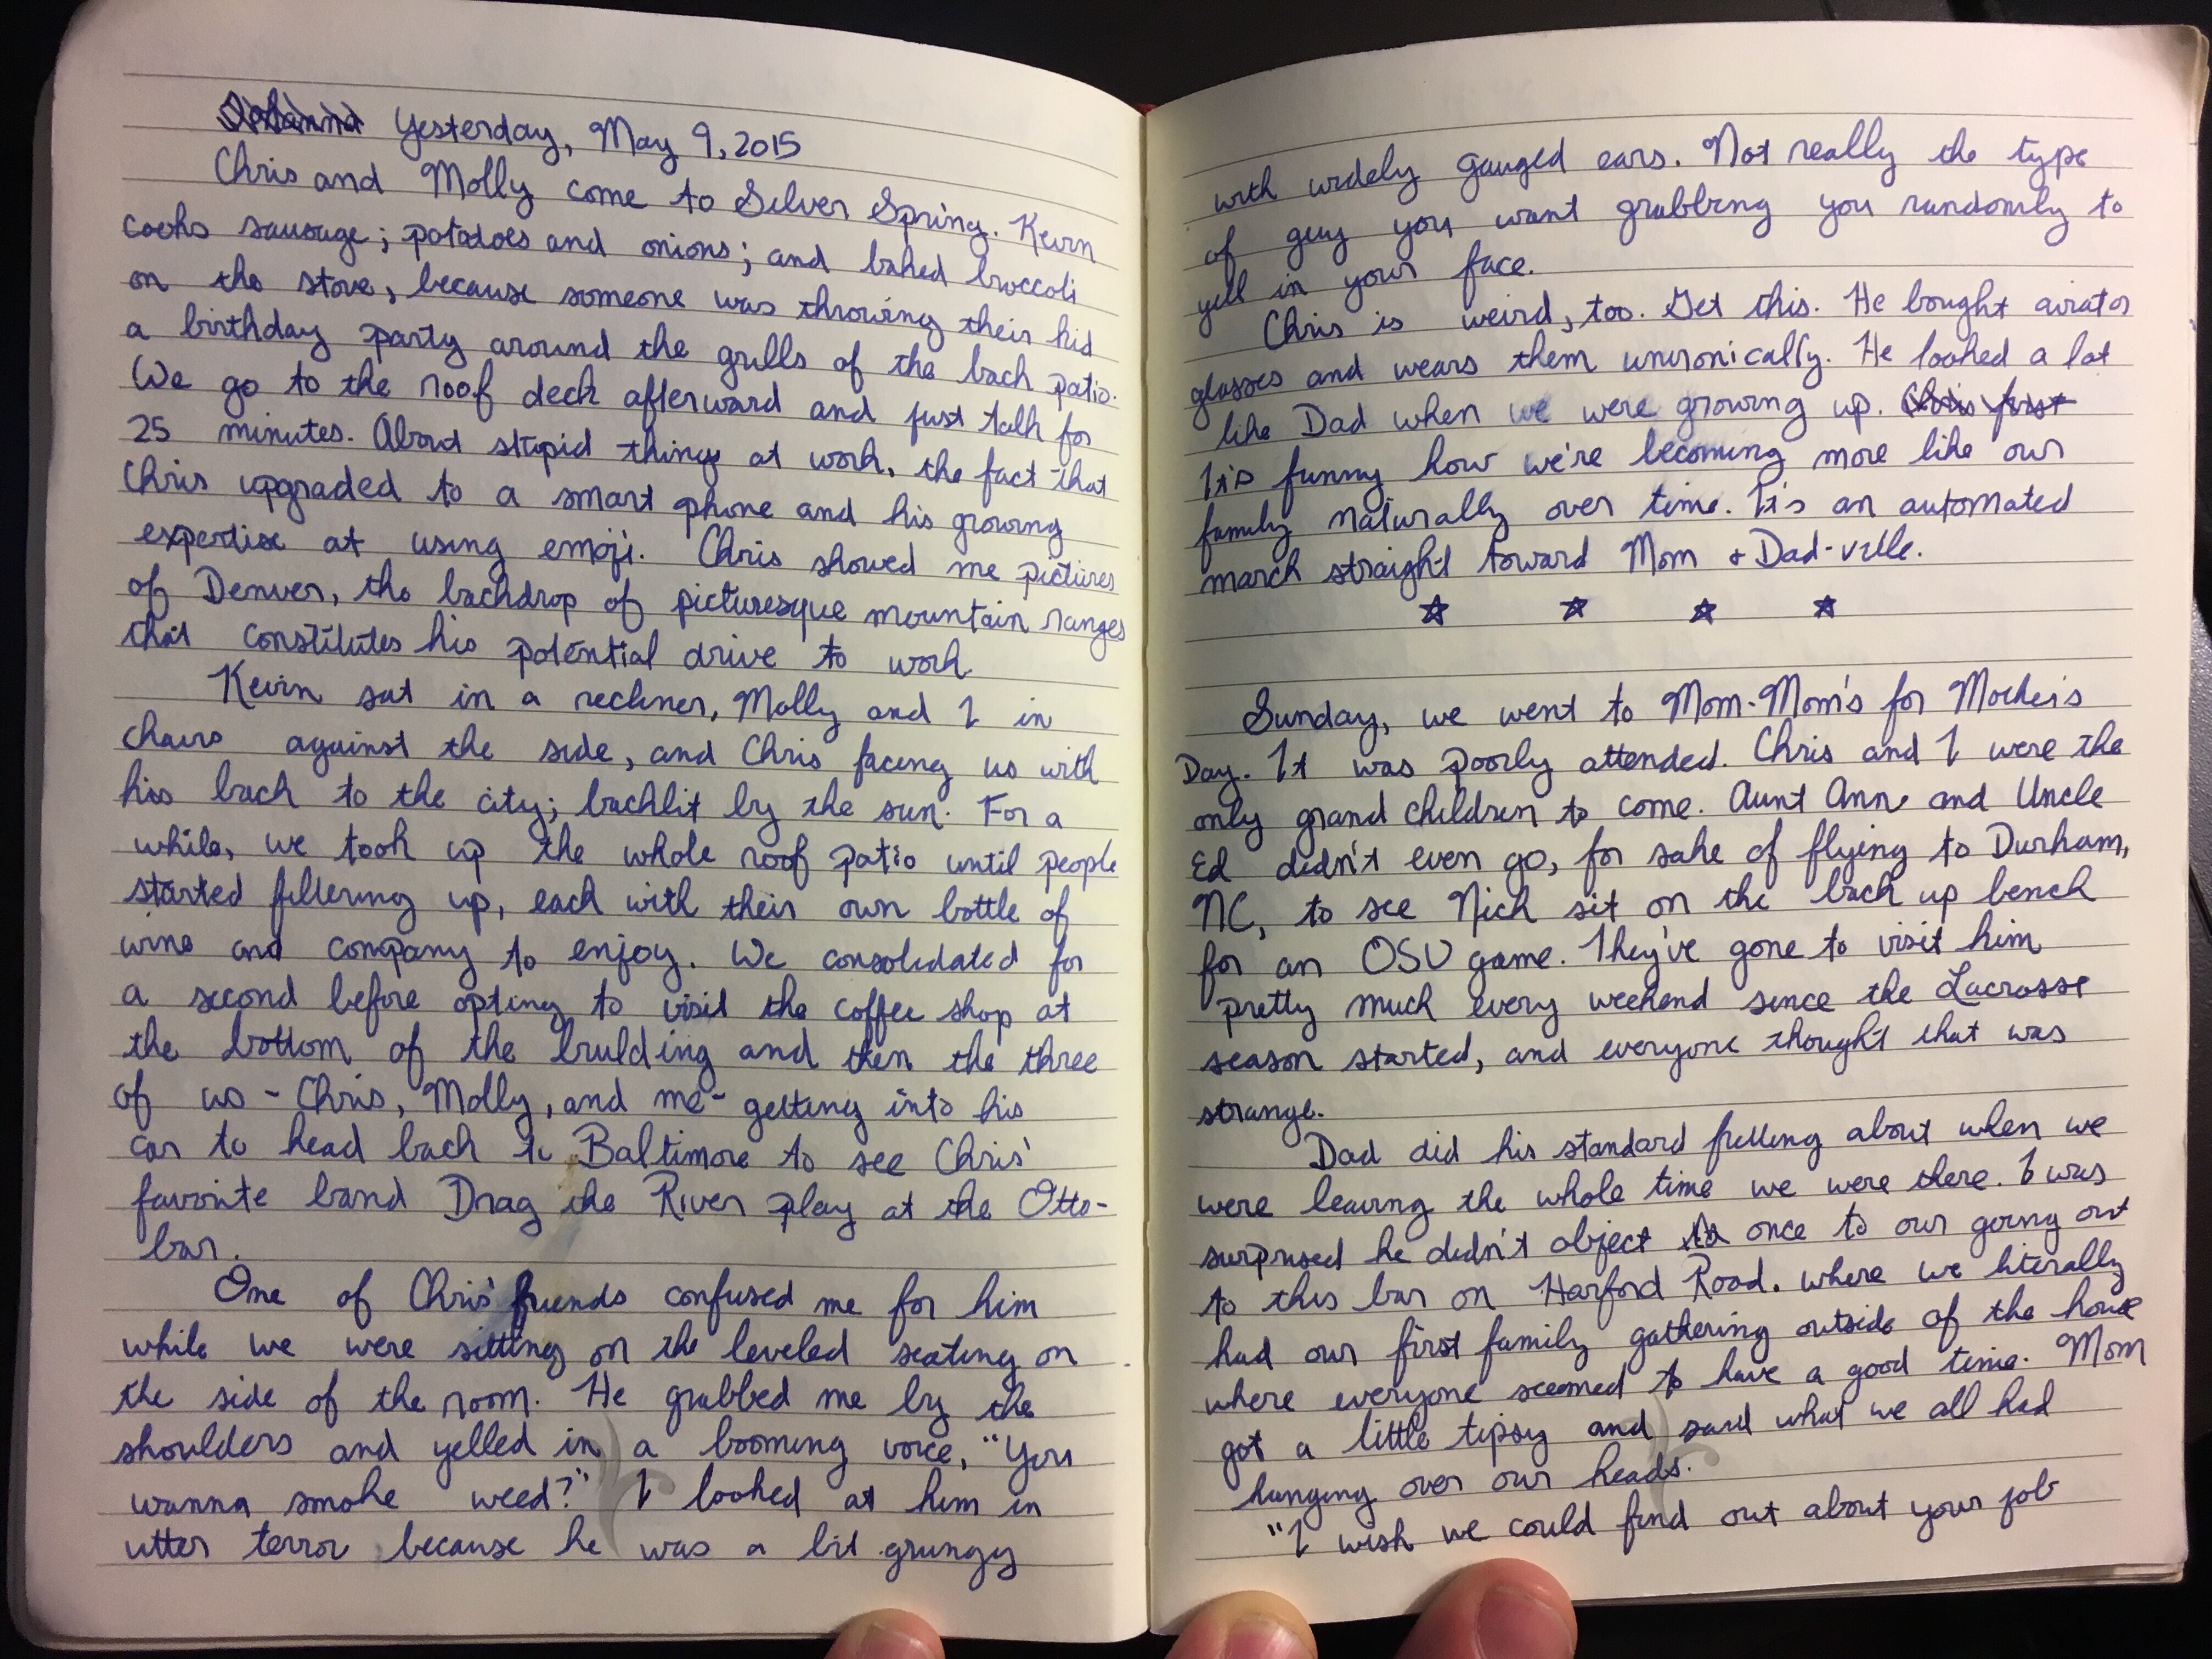 Yesterday, May 9, 2015
Chris and Molly come to Silver Spring. Kevin
cooks sausage; potatoes and onions; and baked broccoli
on the stove, because someone was throwing their kid
a birthday party around the grills of the back patio.
We go to the roof deck afterward and just talk for
25 minutes. About stupid things at work, the fact that
Chris upgraded to a smart phone and his growing
expertise at using emoji. Chris showed me pictures
of Denver, the backdrop of picturesque mountain ranges
that constitutes his potential drive to work
Kevin sat in a recliner, Molly and I in
chairs against the side, and Chris facing us with
his back to the city; backlit by the sun. For a
while, we took up the whole roof patio until people
started filtering up, each with their own bottle of
wine and company to enjoy. We consolidated for
a second before opting to visit the coffee shop at
the bottom of the building and then the three
of us - Chris, Molly, and me - getting into his
car to head back to Baltimore to see Chris'
favorite band Drag the River play at the Otto-
bar.
One of Chris' friends confused me for him
while we were sitting on the leveled seating on
the side of the room. He grabbed me by the
shoulders and yelled in a booming voice, "You
wanna smoke weed?" I looked at him in
utter terror because he was a bit grungy
with widely gauged ears. Not really the type
of guy you want grabbing you randomly to
yell in your face.
Chris is weird, too. Get this. He bought aviator
glasses and wears them unironically. He looked a lot
like Dad when we were growing up. Chris first
It's funny how we're becoming more like our
family naturally over time. It's an automated
march straight toward Mom & Dad-ville.
☆ ☆ ☆ ☆
Sunday, we went to Mom-Mom's for Mother's
Day. It was poorly attended. Chris and I were the
only grand children to come. Aunt Ann and Uncle
Ed didn't even go, for sake of flying to Durham,
NC, to see Nick sit on the back up bench
for an OSU game. They've gone to visit him
pretty much every weekend since the Lacrosse
season started, and everyone thought that was
strange.
Dad did his standard filling about when we
were leaving the whole time we were there. I was
surprised he didn't object once to our going out
to this bar on Harford Road. where we literally
had our first family gathering outside of the house
where everyone seemed to have a good time. Mom
got a little tipsy and said what we all had
hanging over our heads.
"I wish we could find out about your job